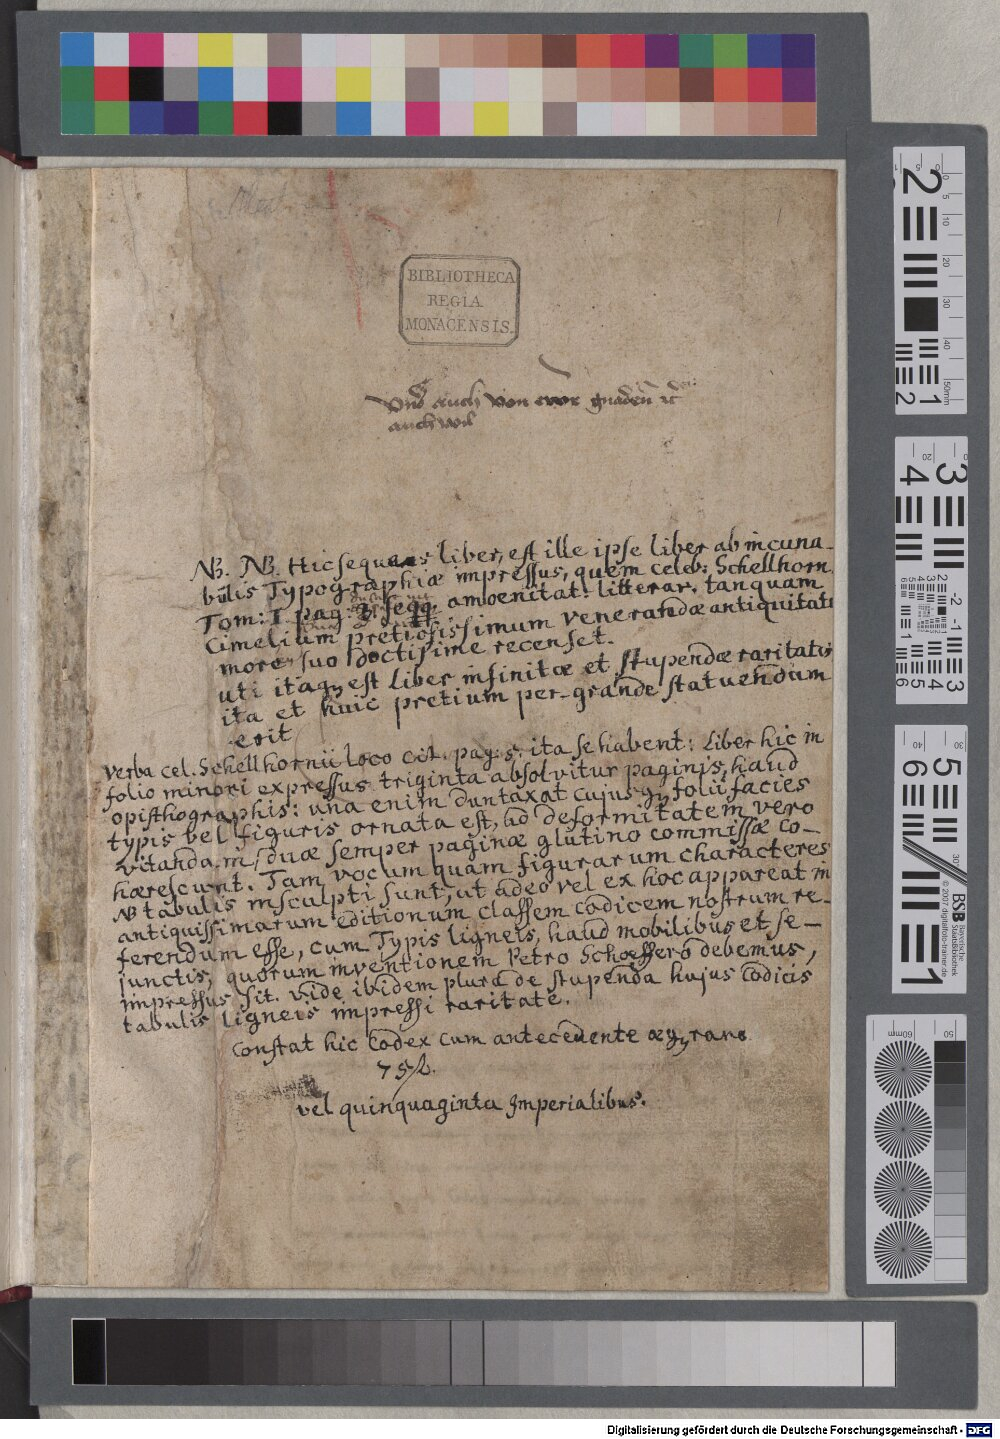 BIBLIOTHECA
REGIA
MONACENSIS.
Vnd auch von ewr gnaden
auch wil
NB. NB. Hic sequens liber, est ille ipse liber ab incuna-
bulis Typographiæ impressus, quem celeb: Schellhorn
Tom: I pag: 3 seqq. amoenitat: litterar. tanquam
Cimelium pretiosissimum venerandæ antiquitatis
more suo doctissime recenset.
uti itaq3 est liber infinitæ et stupendæ raritatis
ita et huic pretium per-grande statuendum
erit
Verba cel. Schellhornii loco cit. pag: 5. ita se habent: Liber hic in
folio minori expressus triginta absolvitur paginis, haud
opisthographis: una enim duntaxat cujusq3 folii facies
typis vel figuris ornata est, ad deformitatem vero
vitandam, duæ semper paginæ glutino commissæ co-
hærescunt. Tam vocum quam figurarum characteres
NB tabulis insculpti sunt, ut adeo vel ex hoc appareat in
antiquissimarum editionum classem codicem nostrum re-
ferendum esse, cum Typis ligneis, haud mobilibus et se-
junctis, quorum inventionem Petro Schoeffero debemus,
impressus sit. vide ibidem plura de stupenda hujus Codicis
tabulis ligneis impressi raritate.
Constat hic Codex cum antecedente æq3 raro
75 fl.
vel quinquaginta Imperialibus.
Digitalisierung gefördert durch die Deutsche Forschungsgemeinschaft - DFG